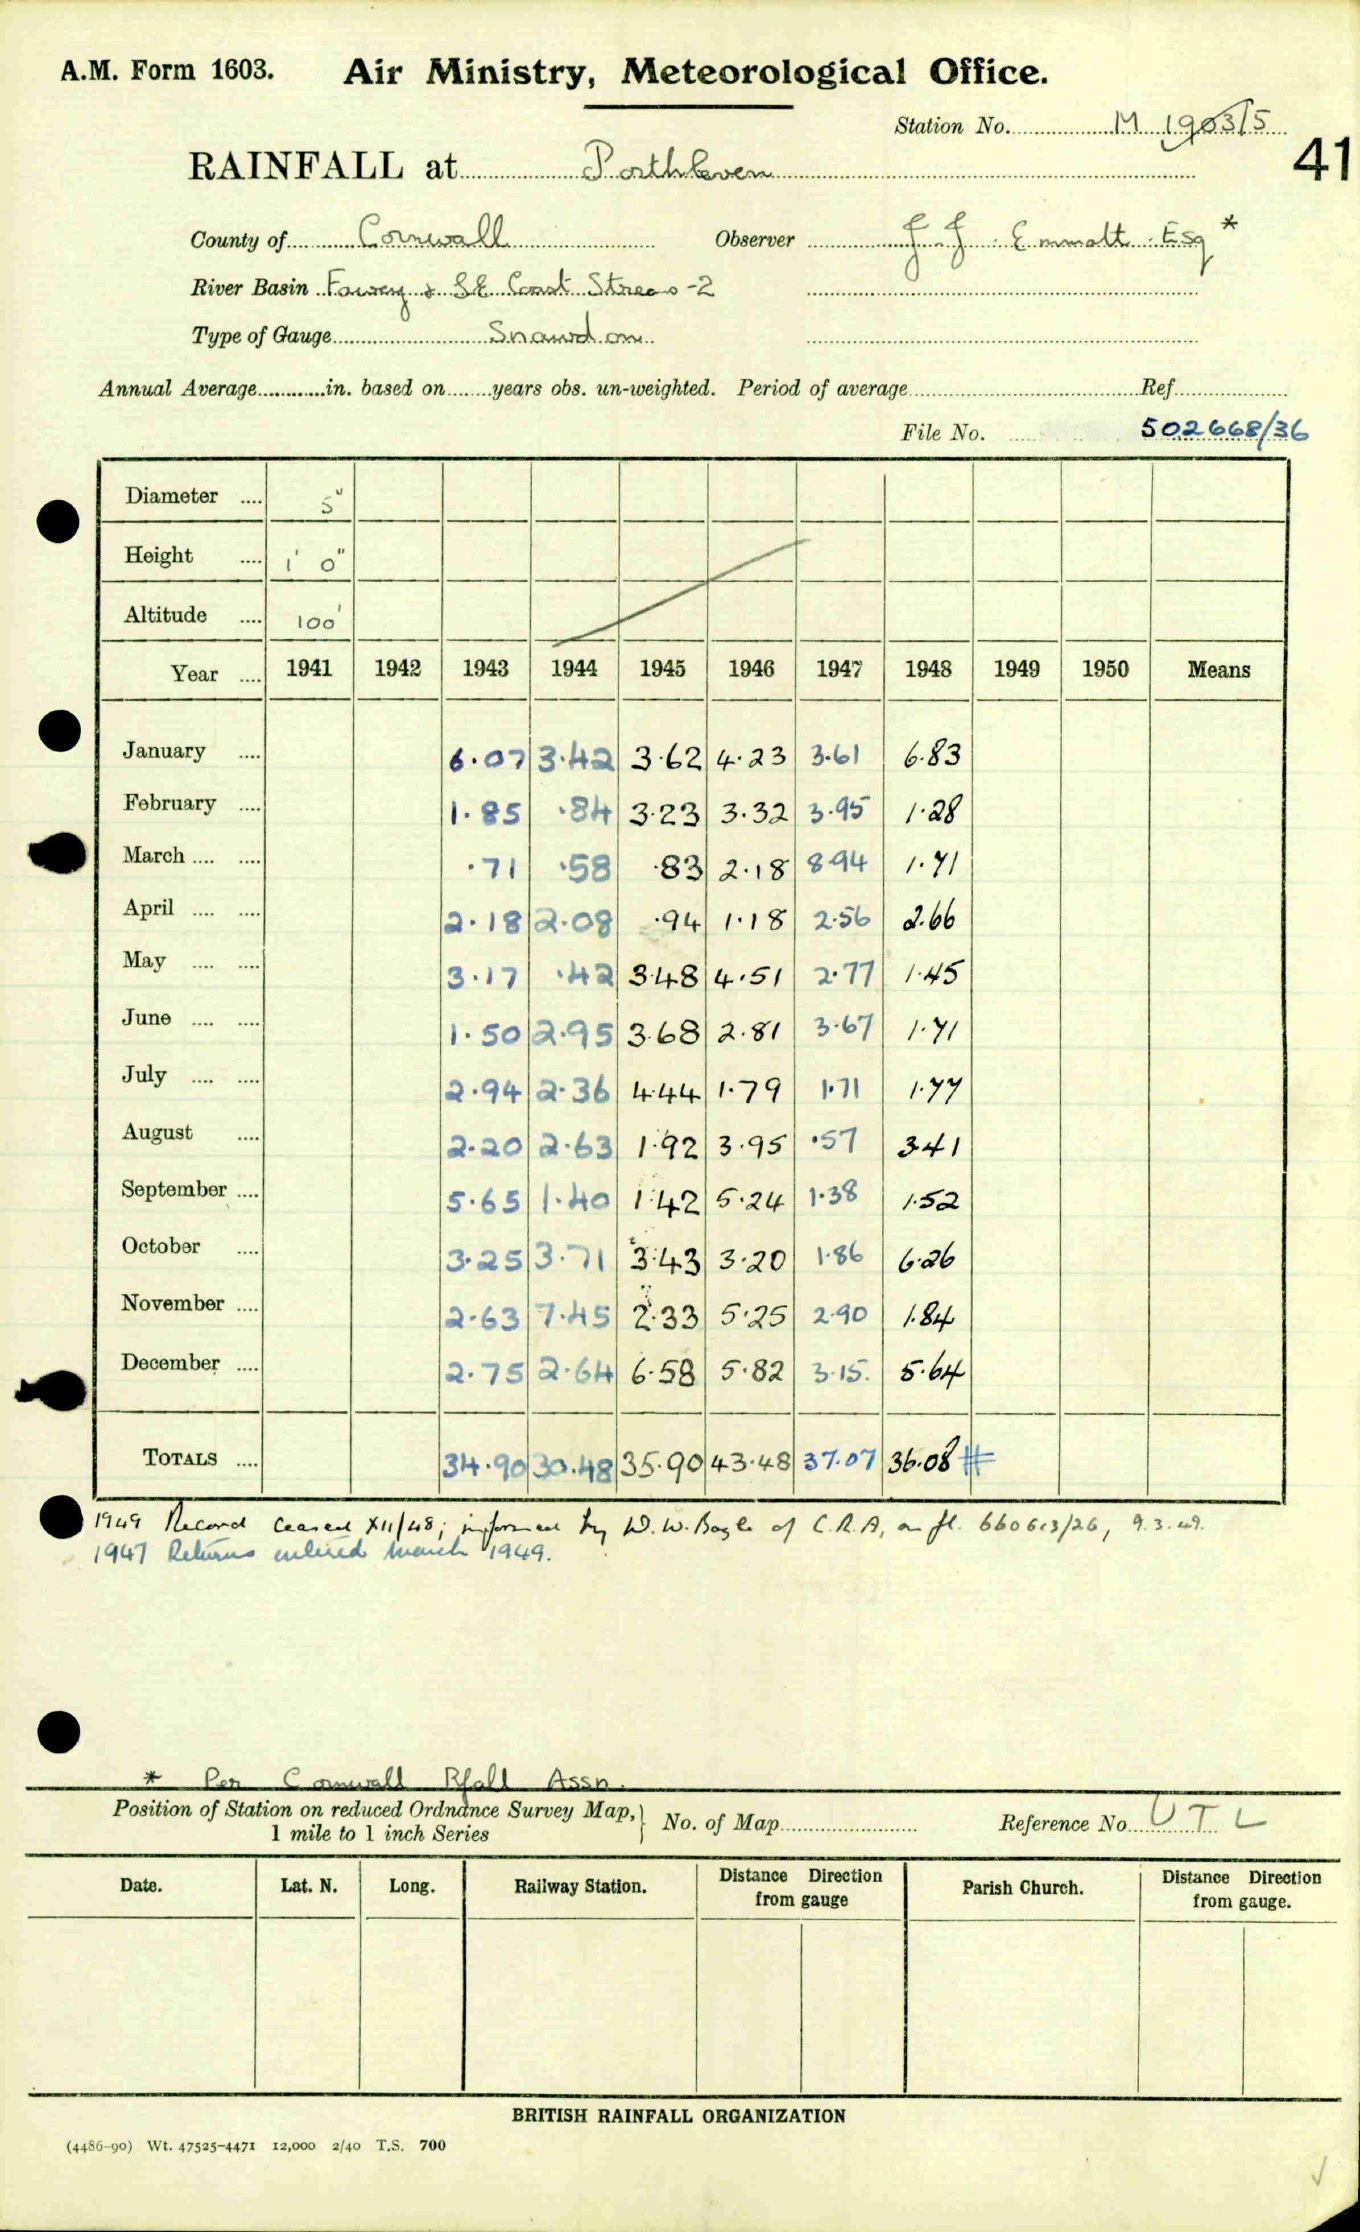 A.M. Form 1603. Air Ministry, Meteorological Office.
Station No. M 1903/5
41
RAINFALL at Porthleven
County of Cornwall Observer J. J. Emmott Esq *
River Basin Fowey & SE Coast Streams -2
Type of Gauge Snowdon
Annual Average in. based on years obs. un-weighted. Period of average Ref
File No. 502668/36
Diameter .... 5"
Height .... 1' 0"
Altitude .... 100'
Year .... 1941 1942 1943 1944 1945 1946 1947 1948 1949 1950 Means
January .... 6.07 3.42 3.62 4.23 3.61 6.83
February .... 1.85 .84 3.23 3.32 3.95 1.28
March .... .... .71 .58 .83 2.18 8.94 1.71
April .... .... 2.18 2.08 .94 1.18 2.56 2.66
May .... .... 3.17 .42 3.48 4.51 2.77 1.45
June .... .... 1.50 2.95 3.68 2.81 3.67 1.71
July .... .... 2.94 2.36 4.44 1.79 1.71 1.77
August .... 2.20 2.63 1.92 3.95 .57 3.41
September .... 5.65 1.40 1.42 5.24 1.38 1.52
October .... 3.25 3.71 3.43 3.20 1.86 6.26
November .... 2.63 7.45 2.33 5.25 2.90 1.84
December .... 2.75 2.64 6.58 5.82 3.15. 5.64
TOTALS .... 34.90 30.48 35.90 43.48 37.07 36.08 #
1949 Record ceased XII/48; informed by W. W. of C.R.A, on fl. 660613/26, 9.3.49.
1947 Returns entered March 1949.
* Per Cornwall Rfall Assn.
Position of Station on reduced Ordnance Survey Map, } No. of Map Reference No. U T L
1 mile to 1 inch Series
Date. Lat. N. Long. Railway Station. Distance Direction from gauge Parish Church. Distance Direction from gauge.
BRITISH RAINFALL ORGANIZATION
(4486-90) Wt. 47525-4471 12,000 2/40 T.S. 700